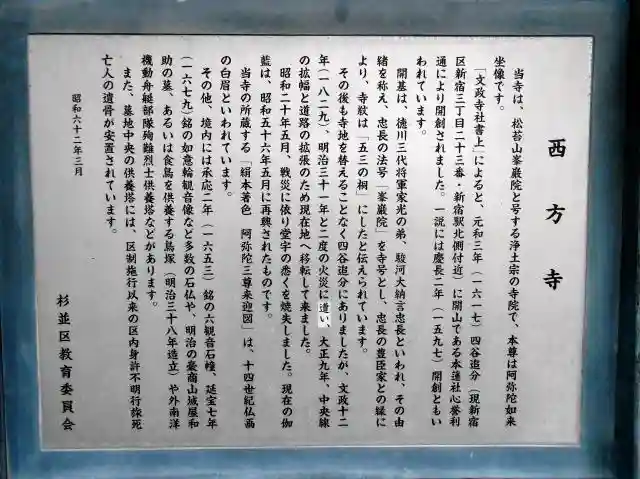 西方寺
当寺は、松苔山峯巌院と号する浄土宗の寺院で、本尊は阿弥陀如来
坐像です。
「文政寺社書上」によると、元和三年（一六一七）四谷追分（現新宿
区新宿三丁目二十三番・新宿駅北側付近）に開山である本蓮社心誉利
通により開創されました。一説には慶長二年（一五九七）開創ともい
われています。
開基は、徳川三代将軍家光の弟、駿河大納言忠長といわれ、その由
緒を称え、忠長の法号「峯巌院」を寺号とし、忠長の豊臣家との縁に
より、寺紋は「五三の桐」にしたと伝えられています。
その後も寺地を替えることなく四谷追分にありましたが、文政十二
年（一八二九）、明治三十一年と二度の火災に遭い、大正九年、中央線
の拡幅と道路の拡張のため現在地へ移転して来ました。
昭和二十年五月、戦災に依り堂宇の悉くを焼失しました。現在の伽
藍は、昭和五十六年五月に再興されたものです。
当寺の所蔵する「絹本著色　阿弥陀三尊来迎図」は、十四世紀仏画
の白眉といわれています。
その他、境内には承応二年（一六五三）銘の六観音石幢、延宝七年
（一六七九）銘の如意輪観音像など多数の石仏や、明治の豪商山城屋和
助の墓、あるいは食鳥を供養する鳥塚（明治三十八年造立）や外南洋
機動舟艇部隊殉難烈士供養塔などがあります。
また、墓地中央の供養塔には、区制施行以来の区内身許不明行旅死
亡人の遺骨が安置されています。
昭和六十二年三月
杉並区教育委員会